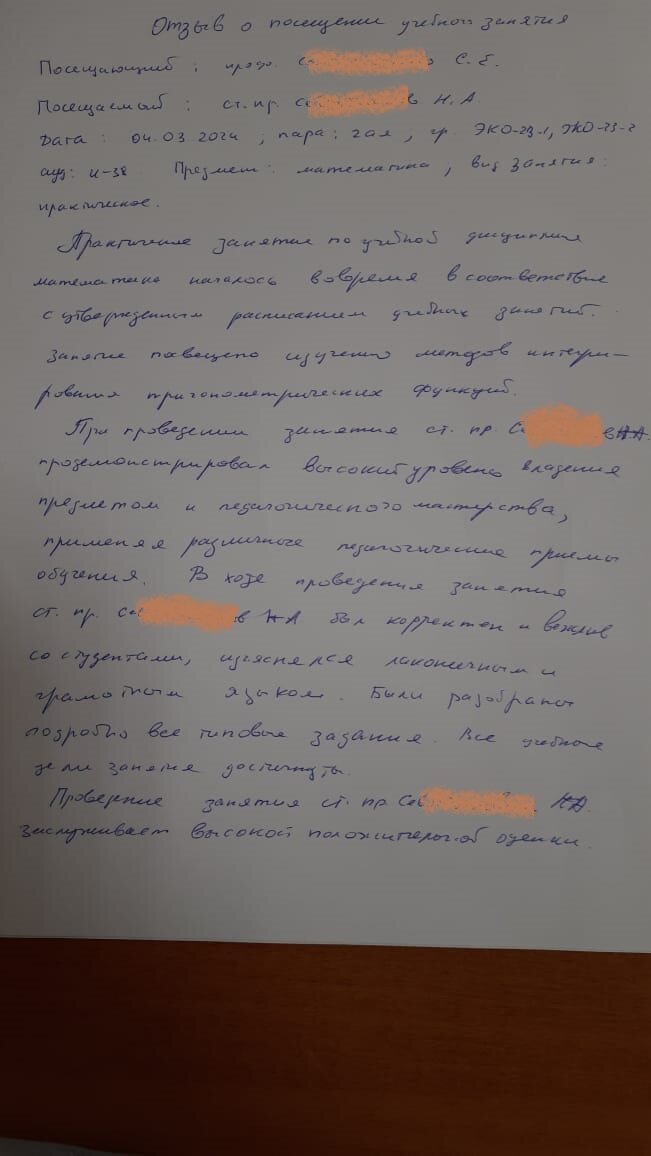 Отзыв о посещении учебного занятия
Посещающий: проф. С. Е.
Посещаемый: ст. пр. Се в Н. А.
Дата: 04.03.2024, пара: 2ая, гр. ЭКО-23-1, ЭКО-23-2
ауд: И-38 Предмет: математика, вид занятия:
практическое.
Практичние занятие по учебной дисциплине
математика началось вовремя в соответствие
с утвержденным расписанием учебных занятий.
Занятие посвещено изучению методов интегри-
рования тригонометрических функций.
При проведении занятия ст. пр. Се в НА.
продемонстрировал высокий уровень владения
предметом и педагогического мастерства,
применяя различные педагогические приемы
обучения. В ходе проведения занятия
ст. пр. Се в НА был корректен и вежлив
со студентами, изъяснялся лаконичным и
грамотным языком. Были разобраны
подробно все типовые задания. Все учебные
цели занятия достигнуты.
Проведение занятия ст. пр. Сев НА.
заслуживает высокой положительной оценки.